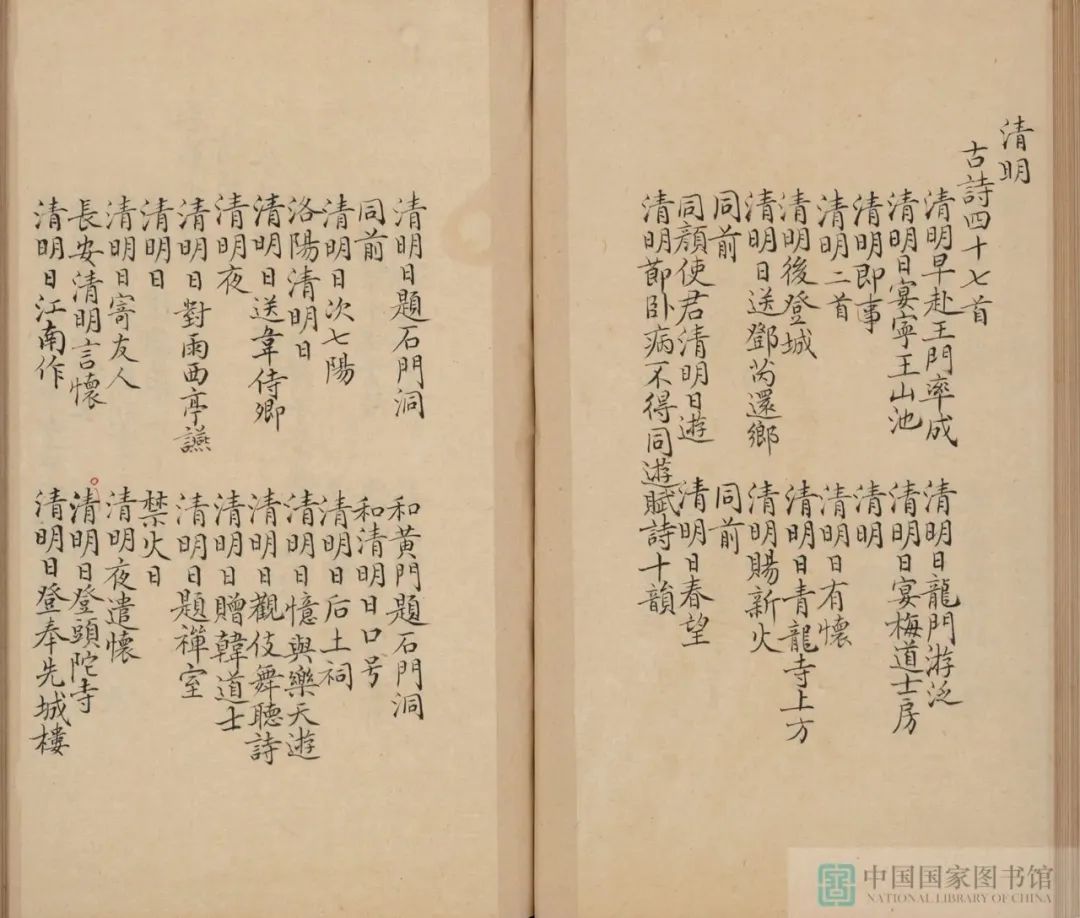 清明
古詩四十七首
清明早赴王門率成 清明日龍門游泛
清明日宴寧王山池 清明日宴梅道士房
清明即事 清明
清明二首 清明日有懷
清明後登城 清明日青龍寺上方
清明日送鄧芮還鄉 清明賜新火
同前 同前
同顔使君清明日遊 清明日春望
清明莭卧病不得同遊賦詩十韻
清明日題石門洞 和黃門題石門洞
同前 和清明日口号
清明日次七陽 清明日后土祠
洛陽清明日 清明日憶與樂天遊
清明日送韋侍卿 清明日觀伎舞聽詩
清明夜 清明日贈韓道士
清明日對雨西亭讌 清明日題禪室
清明日 禁火日
清明日寄友人 清明夜遣懷
長安清明言懷 清明日登頭陀寺
清明日江南作 清明日登奉先城樓
中国国家图书馆
NATIONAL LIBRARY OF CHINA